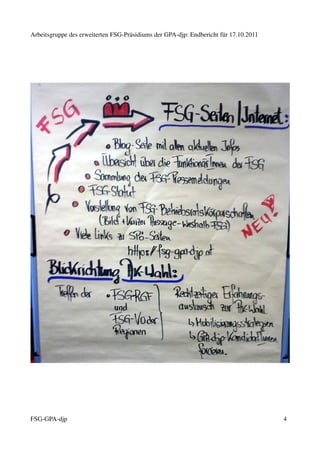 Arbeitsgruppe des erweiterten FSG-Präsidiums der GPA-djp: Endbericht für 17.10.2011
FSG
FSG-Seiten/Internet:
• Blog-Seite mit allen aktuellen Infos
• Übersicht über die FunktionärInnen der FSG
• Sammlung der FSG-Pressemeldungen
• FSG-Statut
• Vorstellung von FSG-Betriebsratskörperschaften
(Bild + kurze Message - weshalb FSG)
NEU!
• Viele Links zu SPÖ-Seiten
http://fsg-gpa-djp.at
Blickrichtung AK-Wahl:
Treffen der • FSG-RGF
und
FSG-VO der
Regionen
Rechtzeitiger Erfahrungs-
austausch zur AK-Wahl
↳ Mobilisierungsstrategien
↳ GPA-djp KandidatInnen
forcieren.
FSG-GPA-djp
4